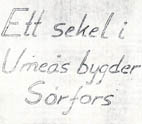 Ett sekel i
Umeås bygder
Sörfors